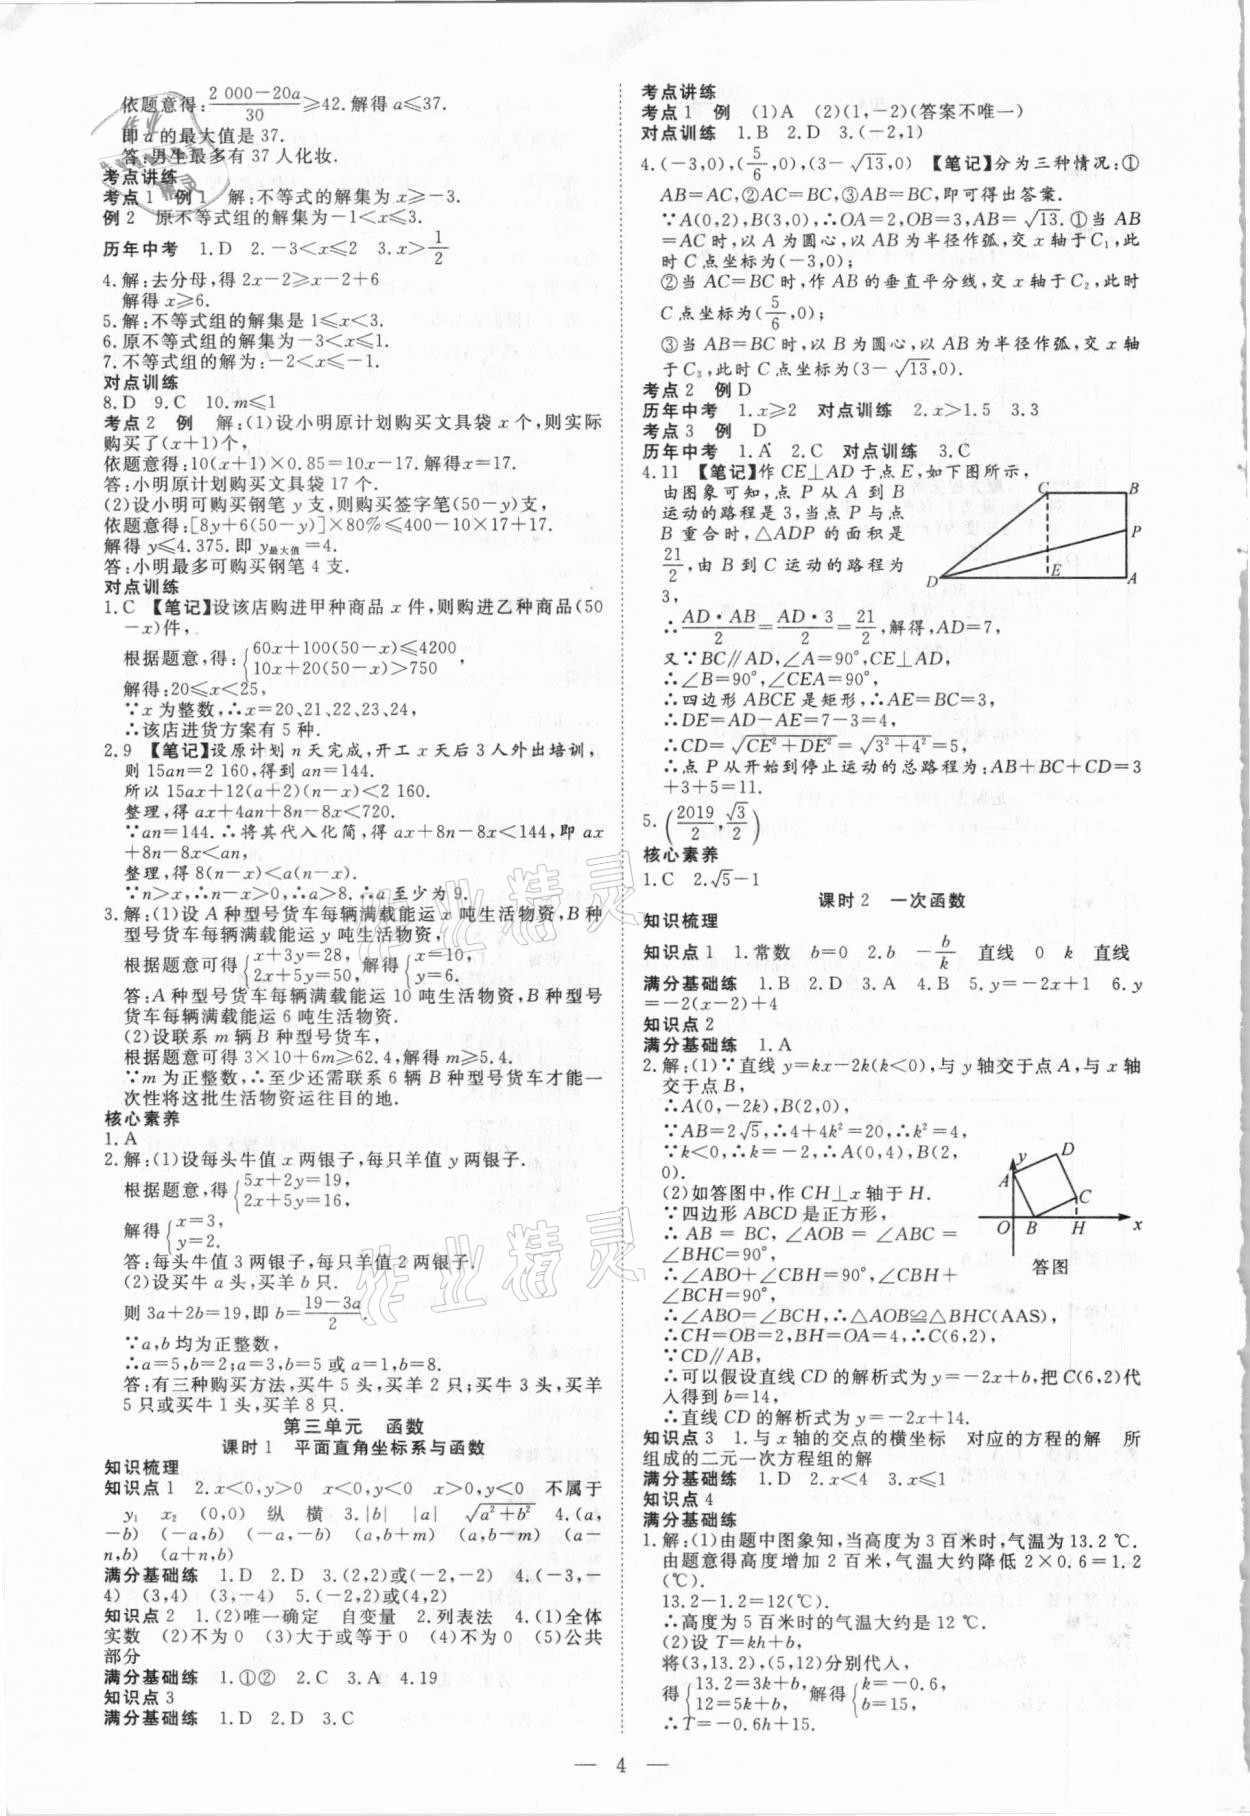 依题意得:(2 000−20a)/30≥42.解得 a≤37.
即 a 的最大值是 37.
答:男生最多有 37 人化妆.
考点讲练
考点 1 例 1 解:不等式的解集为 x≥−3.
例 2 原不等式组的解集为−1<x≤3.
历年中考 1.D 2.−3<x≤2 3.x>1/2
4.解:去分母,得 2x−2≥x−2+6
解得 x≥6.
5.解:不等式组的解集是 1≤x<3.
6.原不等式组的解集为−3<x≤1.
7.不等式组的解为:−2<x≤−1.
对点训练
8.D 9.C 10.m≤1
考点 2 例 解:(1)设小明原计划购买文具袋 x 个,则实际
购买了(x+1)个,
依题意得:10(x+1)×0.85=10x−17.解得x=17.
答:小明原计划购买文具袋 17 个.
(2)设小明可购买钢笔 y 支,则购买签字笔(50−y)支,
依题意得:[8y+6(50−y)]×80%≤400−10×17+17.
解得 y≤4.375.即 y最大值=4.
答:小明最多可购买钢笔 4 支.
对点训练
1.C 【笔记】设该店购进甲种商品 x 件,则购进乙种商品(50
−x)件,
根据题意,得:{60x+100(50−x)≤4200
10x+20(50−x)>750,
解得:20≤x<25,
∵x 为整数,∴x=20、21、22、23、24,
∴该店进货方案有 5 种.
2.9 【笔记】设原计划 n 天完成,开工 x 天后 3 人外出培训,
则 15an=2 160,得到 an=144.
所以 15ax+12(a+2)(n−x)<2 160.
整理,得 ax+4an+8n−8x<720.
∵an=144.∴将其代入化简,得 ax+8n−8x<144,即 ax
+8n−8x<an,
整理,得 8(n−x)<a(n−x).
∵n>x,∴n−x>0,∴a>8.∴a 至少为 9.
3.解:(1)设 A 种型号货车每辆满载能运 x 吨生活物资,B 种
型号货车每辆满载能运 y 吨生活物资,
根据题意可得{x+3y=28,
2x+5y=50, 解得{x=10,
y=6.
答:A 种型号货车每辆满载能运 10 吨生活物资,B 种型号
货车每辆满载能运 6 吨生活物资.
(2)设联系 m 辆 B 种型号货车,
根据题意可得 3×10+6m≥62.4,解得 m≥5.4.
∵m 为正整数,∴至少还需联系 6 辆 B 种型号货车才能一
次性将这批生活物资运往目的地.
核心素养
1.A
2.解:(1)设每头牛值 x 两银子,每只羊值 y 两银子.
根据题意,得{5x+2y=19,
2x+5y=16,
解得{x=3,
y=2.
答:每头牛值 3 两银子,每只羊值 2 两银子.
(2)设买牛 a 头,买羊 b 只.
则 3a+2b=19,即 b=(19−3a)/2
∵a,b均为正整数,
∴a=5,b=2;a=3,b=5 或 a=1,b=8.
答:有三种购买方法,买牛 5 头,买羊 2 只;买牛 3 头,买羊
5 只或买牛 1 头,买羊 8 只.
第三单元 函数
课时 1 平面直角坐标系与函数
知识梳理
知识点 1 2.x<0,y>0 x<0,y<0 x>0,y<0 不属于
y₁ x₂ (0,0) 纵 横 3.|b| |a| √(a²+b²) 4.(a,
−b) (−a,b) (−a,−b) (a,b+m) (a,b−m) (a−
n,b) (a+n,b)
满分基础练 1.D 2.D 3.(2,2)或(−2,−2) 4.(−3,−
4) (3,4) (3,−4) 5.(−2,2)或(4,2)
知识点 2 1.(2)唯一确定 自变量 2.列表法 4.(1)全体
实数 (2)不为 0 (3)大于或等于 0 (4)不为 0 (5)公共
部分
满分基础练 1.①② 2.C 3.A 4.19
知识点 3
满分基础练 1.D 2.D 3.C
考点讲练
考点 1 例 (1)A (2)(1,−2)(答案不唯一)
对点训练 1.B 2.D 3.(−2,1)
4.(−3,0),(5/6,0),(3−√13,0) 【笔记】分为三种情况:①
AB=AC,②AC=BC,③AB=BC,即可得出答案.
∵A(0,2),B(3,0),∴OA=2,OB=3,AB=√13.①当 AB
=AC 时,以 A 为圆心,以 AB 为半径作弧,交 x 轴于C₁,此
时 C 点坐标为(−3,0);
②当 AC=BC 时,作 AB 的垂直平分线,交 x 轴于 C₂,此时
C 点坐标为(5/6,0);
③当 AB=BC 时,以 B 为圆心,以 AB 为半径作弧,交 x 轴
于 C₃,此时 C 点坐标为(3−√13,0).
考点 2 例 D
历年中考 1.x≥2 对点训练 2.x>1.5 3.3
考点 3 例 D
历年中考 1.A 2.C 对点训练 3.C
4.11 【笔记】作 CE⊥AD 于点 E,如下图所示,
由图象可知,点 P 从 A 到 B
运动的路程是 3,当点 P 与点
B 重合时,△ADP 的面积是
21/2,由 B 到 C 运动的路程为
3,
C B P D E A
∴AD·AB/2=AD·3/2=21/2,解得,AD=7,
又∵BC∥AD,∠A=90°,CE⊥AD,
∴∠B=90°,∠CEA=90°,
∴四边形 ABCE 是矩形,∴AE=BC=3,
∴DE=AD−AE=7−3=4,
∴CD=√(CE²+DE²)=√(3²+4²)=5,
∴点 P 从开始到停止运动的总路程为:AB+BC+CD=3
+3+5=11.
5.(2019/2,√3/2)
核心素养
1.C 2.√5−1
课时 2 一次函数
知识梳理
知识点 1 1.常数 b=0 2.b −b/k 直线 0 k 直线
满分基础练 1.B 2.D 3.A 4.B 5.y=−2x+1 6.y
=−2(x−2)+4
知识点 2
满分基础练 1.A
2.解:(1)∵直线 y=kx−2k(k<0),与 y 轴交于点 A,与 x 轴
交于点 B,
∴A(0,−2k),B(2,0),
∵AB=2√5,∴4+4k²=20,∴k²=4,
∵k<0,∴k=−2,∴A(0,4),B(2,
0).
(2)如答图中,作 CH⊥x 轴于 H.
∵四边形 ABCD 是正方形,
∴AB=BC,∠AOB=∠ABC=
∠BHC=90°,
∴∠ABO+∠CBH=90°,∠CBH+
∠BCH=90°,
y D A C O B H x
答图
∴∠ABO=∠BCH,∴△AOB≌△BHC(AAS),
∴CH=OB=2,BH=OA=4,∴C(6,2),
∵CD∥AB,
∴可以假设直线 CD 的解析式为 y=−2x+b,把 C(6,2)代
入得到 b=14,
∴直线 CD 的解析式为 y=−2x+14.
知识点 3 1.与 x 轴的交点的横坐标 对应的方程的解 所
组成的二元一次方程组的解
满分基础练 1.D 2.x<4 3.x≤1
知识点 4
满分基础练
1.解:(1)由题中图象知,当高度为 3 百米时,气温为 13.2 ℃.
由题意得高度增加 2 百米,气温大约降低 2×0.6=1.2
(℃).
13.2−1.2=12(℃).
∴高度为 5 百米时的气温大约是 12 ℃.
(2)设 T=kh+b,
将(3,13.2),(5,12)分别代入,
得{13.2=3k+b,
12=5k+b, 解得{k=−0.6,
b=15,
∴T=−0.6h+15.
— 4 —
作业精灵
作业精灵